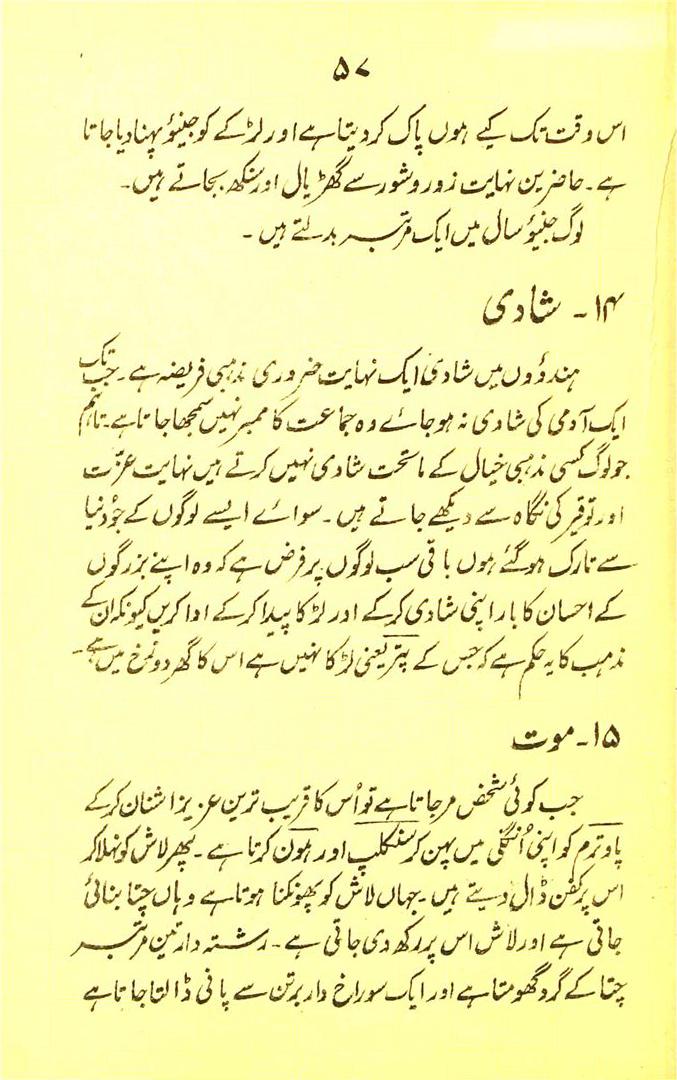 ۵۷
اس وقت تک کیے ہوں پاک کر دیتا ہے اور لڑکے کو جنیؤ پہنا دیا جاتا
ہے۔ حاضرین نہایت زور و شور سے گھڑیال اور سنکھ بجاتے ہیں۔
لوگ جنیؤ سال میں ایک مرتبہ بدلتے ہیں۔
۱۴۔ شادی
ہندوؤں میں شادی ایک نہایت ضروری مذہبی فریضہ ہے۔ جب تک
ایک آدمی کی شادی نہ ہو جائے وہ جماعت کا ممبر نہیں سمجھا جاتا ہے۔ تاہم
جو لوگ کسی مذہبی خیال کے ماتحت شادی نہیں کرتے ہیں نہایت عزّت
اور توقیر کی نگاہ سے دیکھے جاتے ہیں۔ سوائے ایسے لوگوں کے جو دُنیا
سے تارک ہو گئے ہوں باقی سب لوگوں پر فرض ہے کہ وہ اپنے بزرگوں
کے احسان کا بار اپنی شادی کر کے اور لڑکا پیدا کر کے ادا کریں کیونکہ ان کے
مذہب کا یہ حکم ہے کہ جس کے پتر یعنی لڑکا نہیں ہے اس کا گھر دوزخ میں ہے۔
۱۵۔ موت
جب کوئی شخص مر جاتا ہے تو اُس کا قریب ترین عزیز اشنان کر کے
پاوترم کو اپنی اُنگلی میں پہن کر سنکلپ اور ہون کرتا ہے۔ پھر لاش کو نہلا کر
اس پر کفن ڈال دیتے ہیں۔ جہاں لاش کو پھونکنا ہوتا ہے وہاں چتا بنائی
جاتی ہے اور لاش اس پر رکھ دی جاتی ہے۔ رشتہ دار تین مرتبہ
چتا کے گرد گھومتا ہے اور ایک سوراخ دار برتن سے پانی ڈالتا جاتا ہے